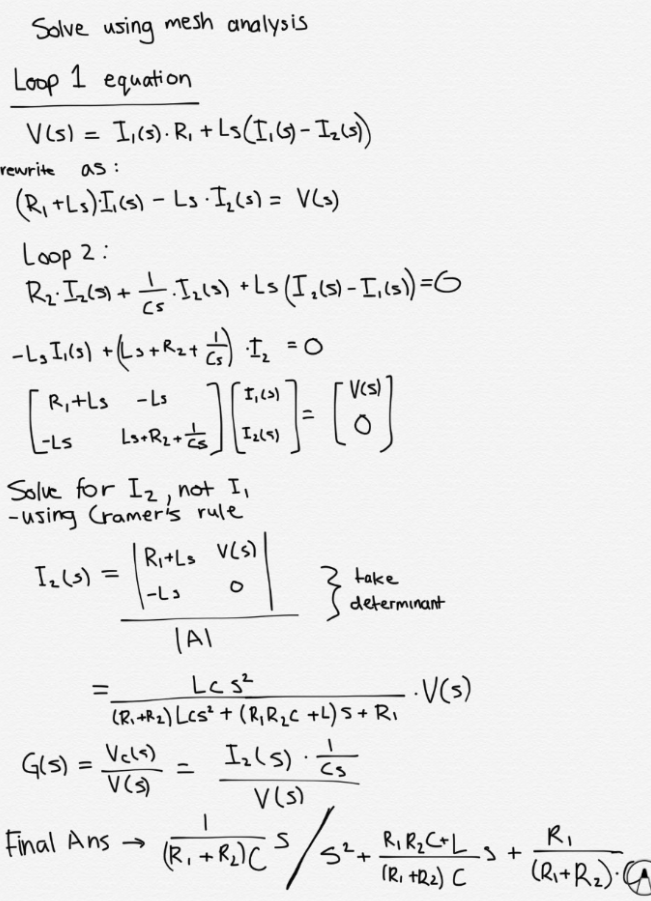 Solve using mesh analysis
Loop 1 equation
V(s) = I₁(s)·R₁ + Ls(I₁(s) - I₂(s))
rewrite as:
(R₁ + Ls)·I₁(s) - Ls·I₂(s) = V(s)
Loop 2:
R₂·I₂(s) + 1/Cs · I₂(s) + Ls(I₂(s) - I₁(s)) = 0
-Ls I₁(s) + (Ls + R₂ + 1/Cs)·I₂ = 0
[R₁+Ls -Ls] [I₁(s)] = [V(s)]
[-Ls Ls+R₂+1/Cs] [I₂(s)] [0]
Solve for I₂, not I₁
-using Cramer's rule
I₂(s) = |R₁+Ls V(s)| / |A| } take
|-Ls 0| determinant
= LCs² / ((R₁+R₂)LCs² + (R₁R₂C + L)s + R₁) · V(s)
G(s) = Vc(s)/V(s) = (I₂(s) · 1/Cs) / V(s)
Final Ans → 1/((R₁+R₂)C) s / s² + (R₁R₂C+L)/((R₁+R₂)C) s + R₁/((R₁+R₂)·